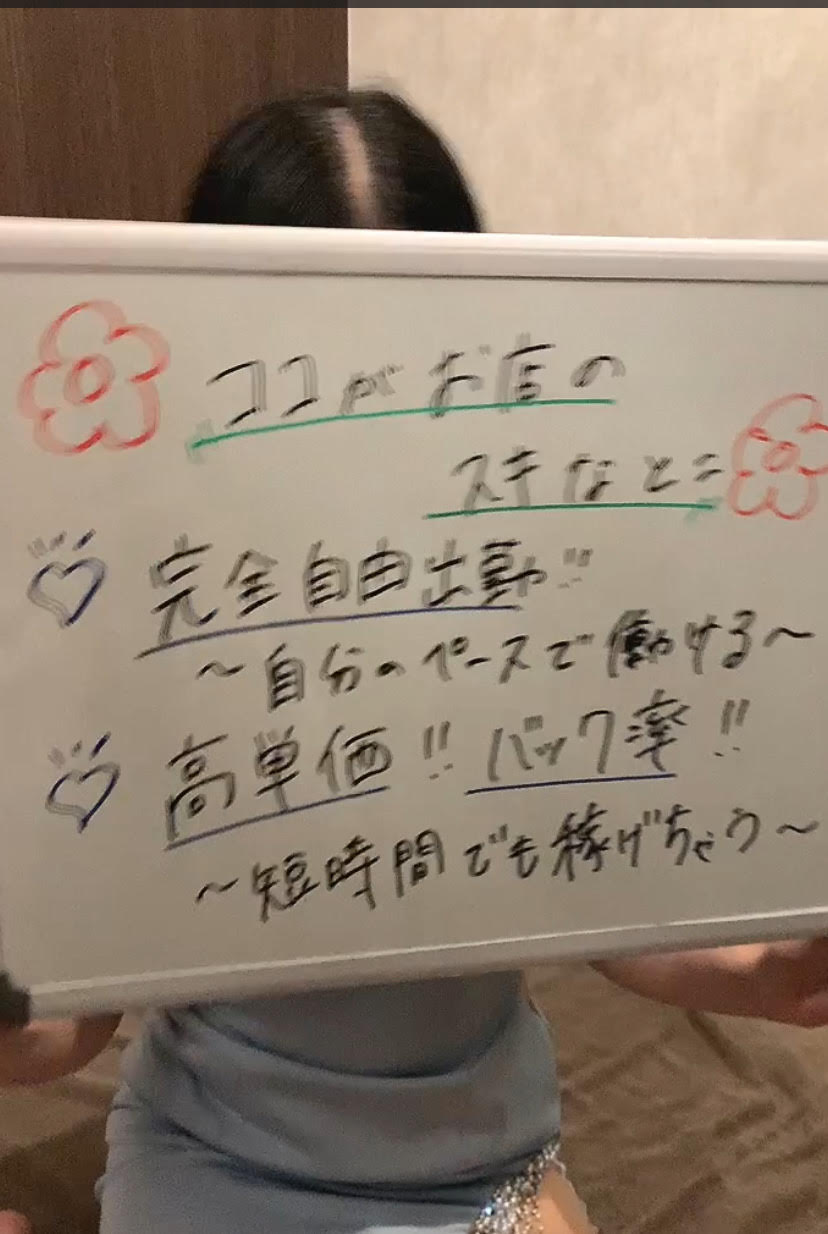 ココがお店の
スキなとこ
完全自由出勤!!
～自分のペースで働ける～
高単価!! バック率!!
～短時間でも稼げちゃう～